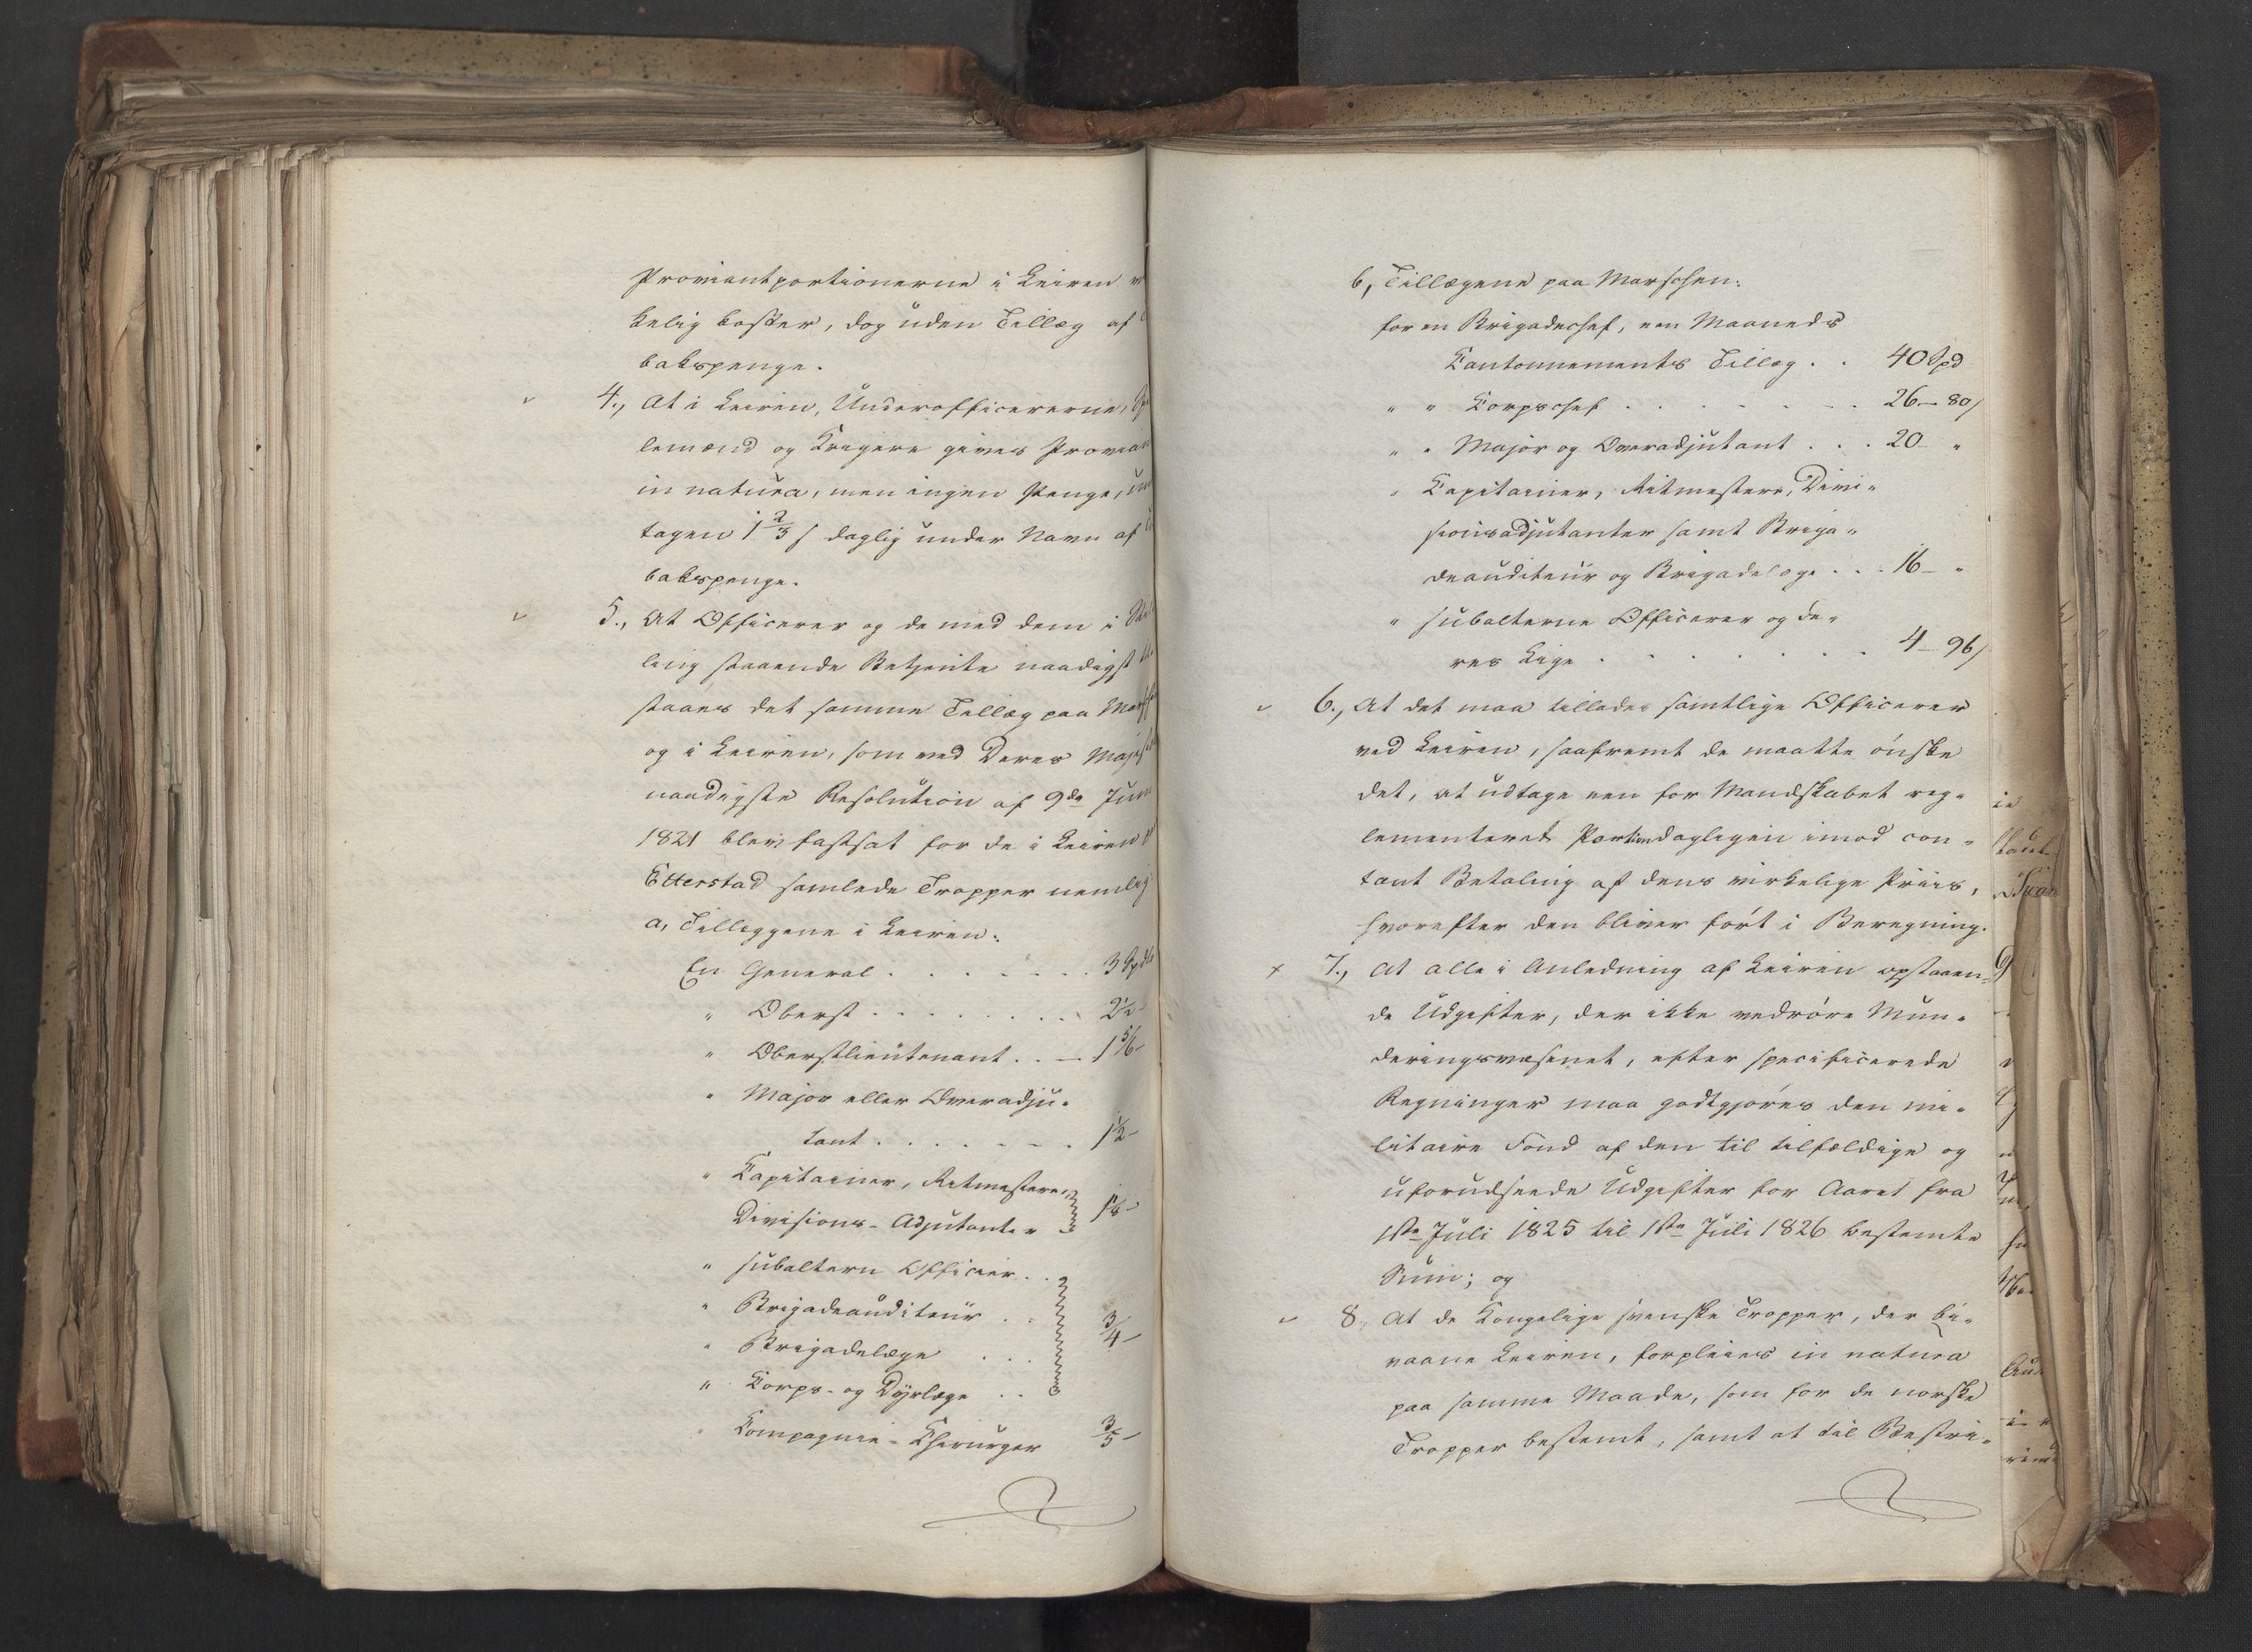 Proviantportionerne i Leiren
kelig koster, dog uden Tillæg af
bakspenge.
4., At i Leiren, Underofficererne,
lemænd og Krigere gives Provian
in natura, men ingen Penge, und
tagen 1 2/3 s daglig under Navn af
bakspenge.
5., At Officerer og de med dem i
ling staaende Betjente naadigst
staaes det samme Tillæg paa
og i Leiren, som ved Deres Majest
naadigste Resolution af 9de Juni
1821 blev fastsat for de i Leiren
Etterstad samlede Tropper nemlig
a, Tillæggene i Leiren:
En General . . . . . . . 3 Spd
" Oberst . . . . . . . . 2½ -
" Oberstlieutenant . . . 1 5/6 -
" Major eller Overadju-
tant . . . . . . . 1½ -
" Capitainer, Ritmestere,
Divisions-Adjutanter
" subaltern Officier . .
" Brigadeauditeur . .
" Brigadelæge . . .
3/4 -
" Corps- og Dyrlæge . .
" Compagnie-Chirurger 3/5 -
b, Tillægene paa Marschen:
for en Brigadechef, een Maaneds
Cantonnements Tillæg . . 40 Spd
" " Corpschef . . . . . . . 26 - 80 s
" " Major og Overadjutant . . . 20 "
" Capitainer, Ritmestere, Divi-
sionsadjutanter samt Briga-
deauditeur og Brigadelæge . . . 16 - "
" subalterne Officerer og de-
res Lige . . . . . . . 4 - 96 s
6., At det maa tillades samtlige Officerer
ved Leiren, saafremt de maatte ønske
det, at udtage een for Mandskabet reg-
lementeret Portion dagligen imod con-
tant Betaling af dens virkelige Priis,
hvorefter den bliver ført i Beregning.
7., At alle i Anledning af Leiren opstaaen-
de Udgifter, der ikke vedrøre Mun-
deringsvæsenet, efter specificerede
Regninger maa godtgjøres den mi-
litaire Fond af den til tilfældige og
uforudseede Udgifter for Aaret fra
1ste Juli 1825 til 1ste Juli 1826 bestemte
Sum; og
8., At de Kongelige svenske Tropper, der bi-
vaane Leiren, forpleies in natura
paa samme Maade, som for de norske
Tropper bestemt, samt at til Bestri-